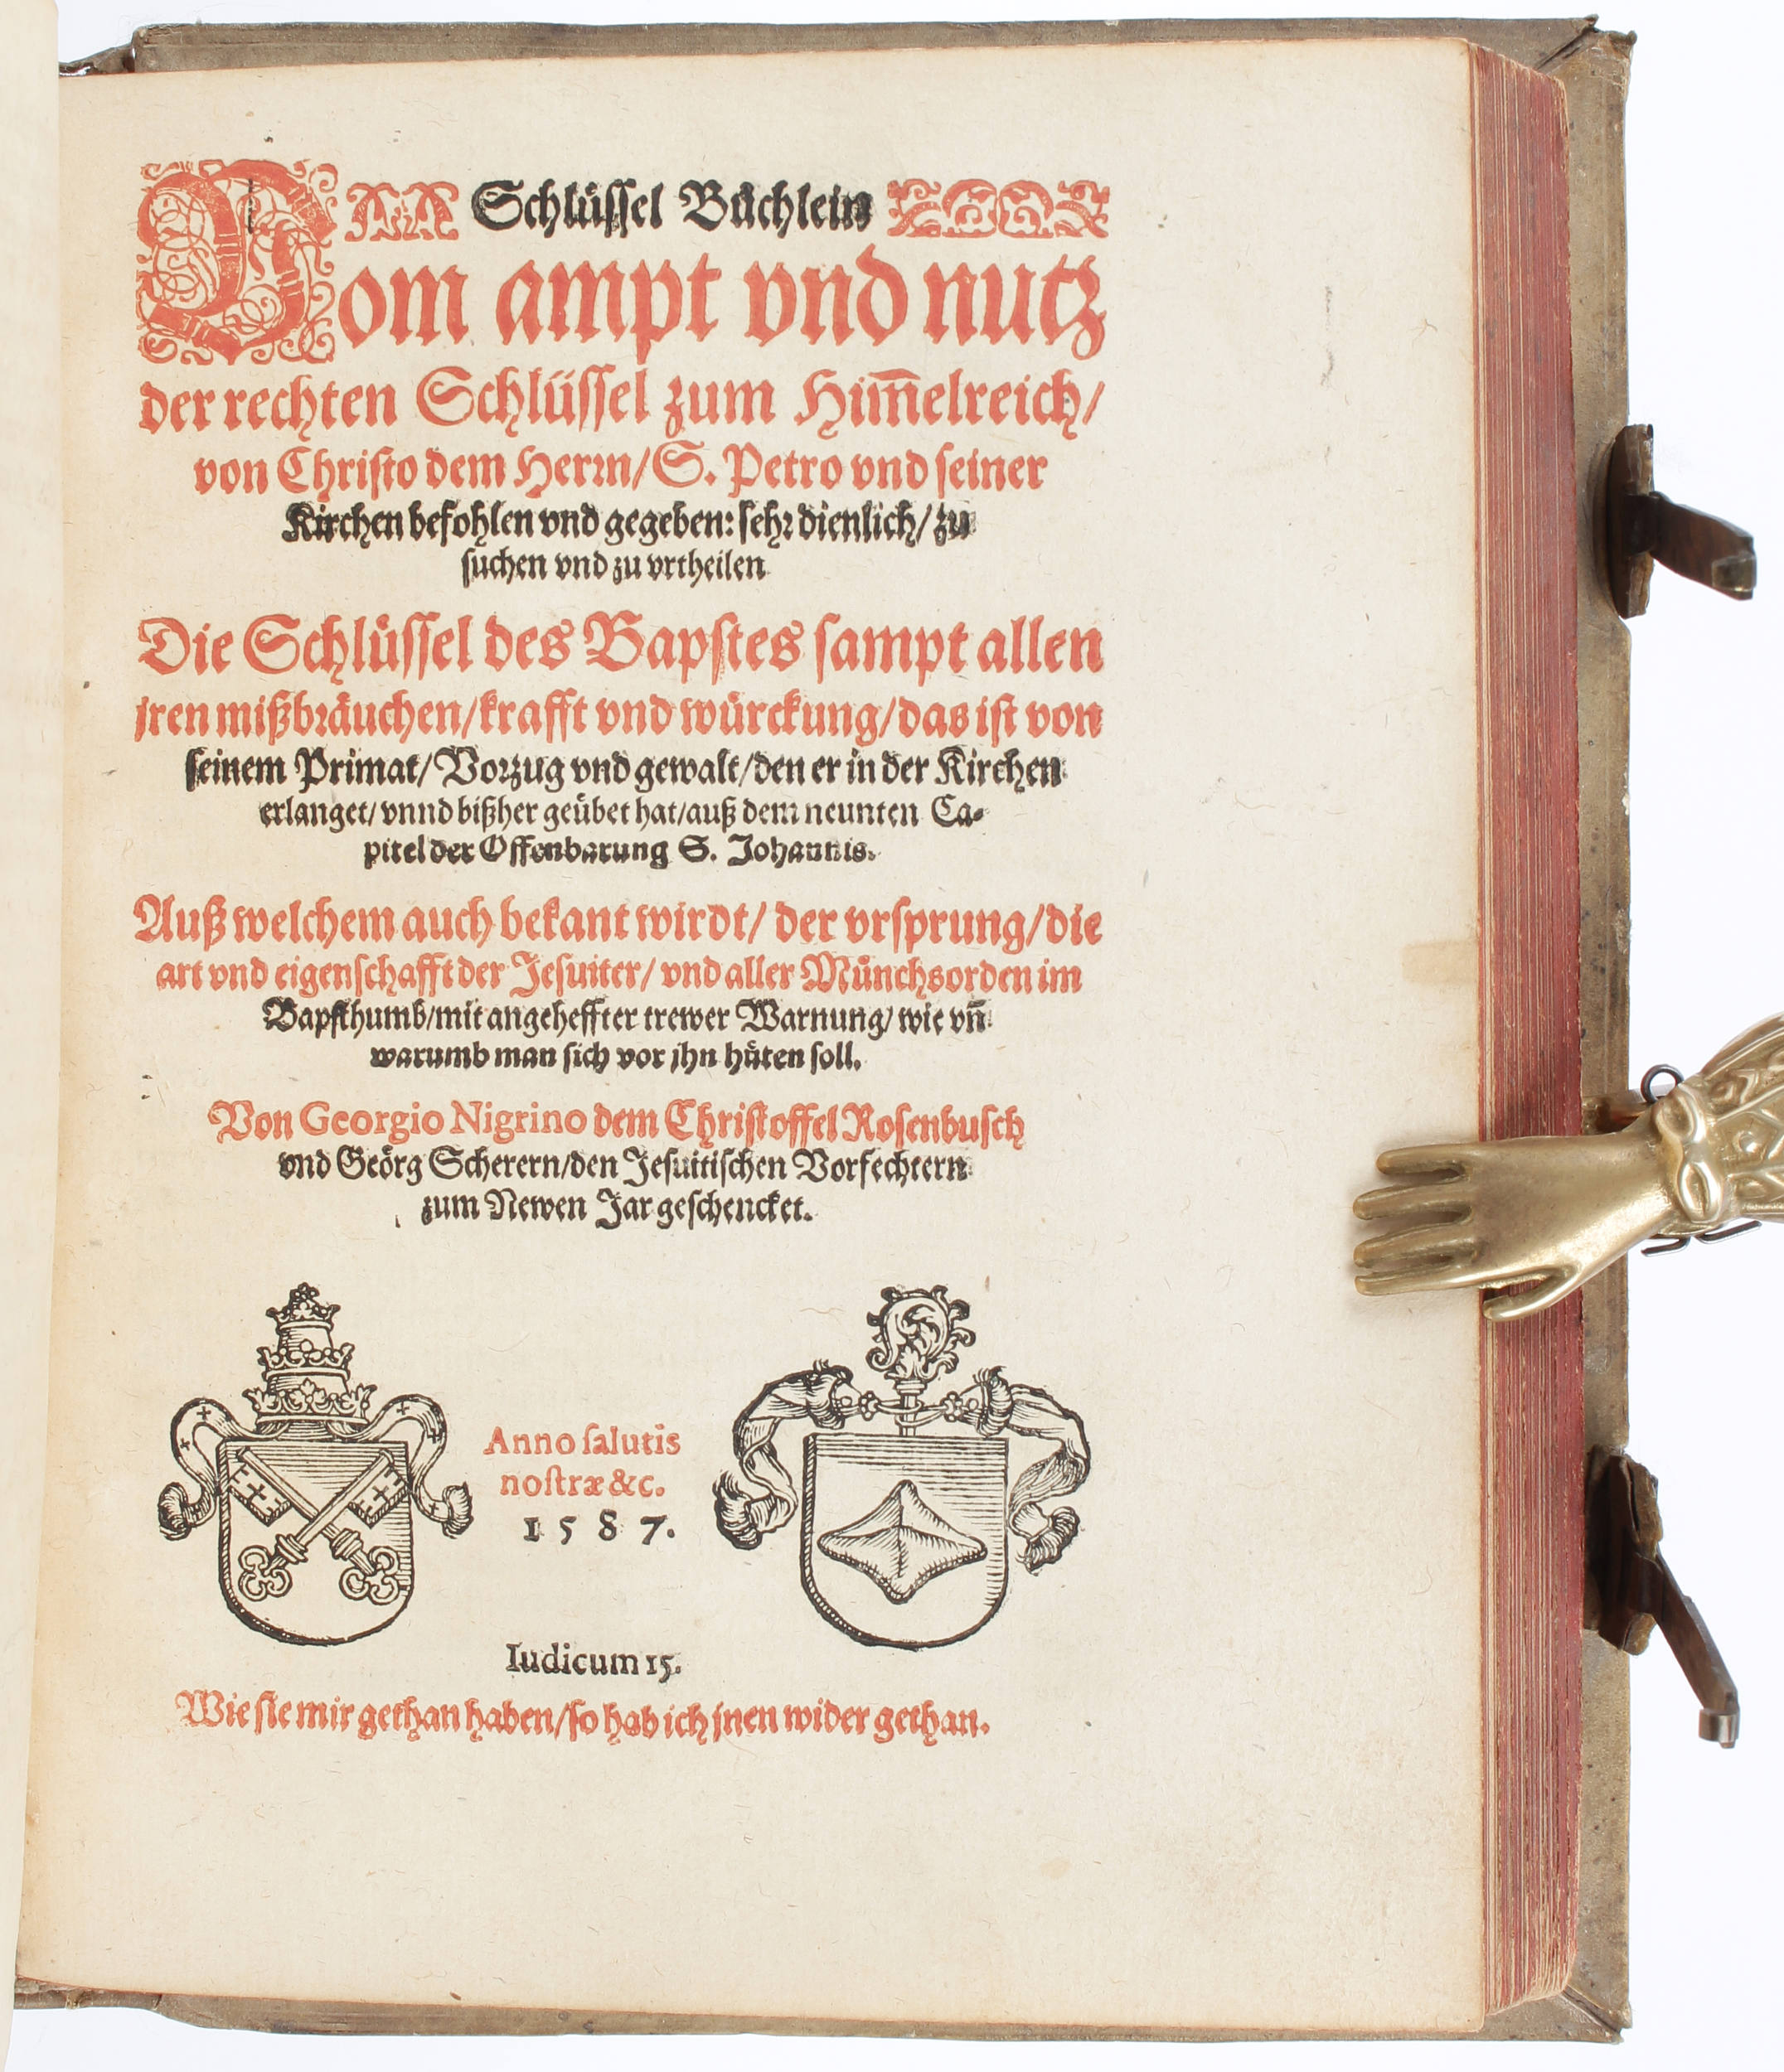 Schlüssel Büchlein
Vom ampt vnd nutz
der rechten Schlüssel zum Him̅elreich/
von Christo dem Herrn/ S. Petro vnd seiner
Kirchen befohlen vnd gegeben: sehr dienlich/ zu
suchen vnd zu vrtheilen
Die Schlüssel des Bapstes sampt allen
jren mißbräuchen/ krafft vnd würckung/ das ist von
seinem Primat/ Vorzug vnd gewalt/ den er in der Kirchen
erlanget/ vnnd bißher geübet hat/ auß dem neunten Ca-
pitel der Offenbarung S. Johannis.
Auß welchem auch bekant wirdt/ der vrsprung/ die
art vnd eigenschafft der Jesuiter/ vnd aller Münchsorden im
Bapsthumb/ mit angeheffter trewer Warnung/ wie vn̅
warumb man sich vor jhn hüten soll.
Von Georgio Nigrino dem Christoffel Rosenbusch
vnd Geörg Scherern/ den Jesuitischen Vorfechtern
zum Newen Jar geschencket.
Anno salutis
nostræ &c.
1587.
Iudicum 15.
Wie sie mir gethan haben/ so hab ich jnen wider gethan.